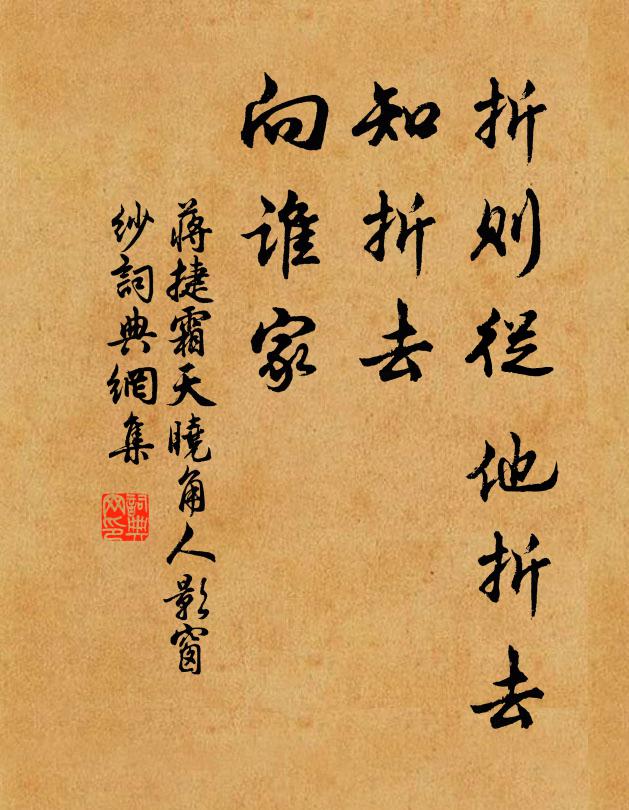 折則從他折去
知折去
向誰家
蔣捷霜天曉角人影窗
紗詞典網集
詞典